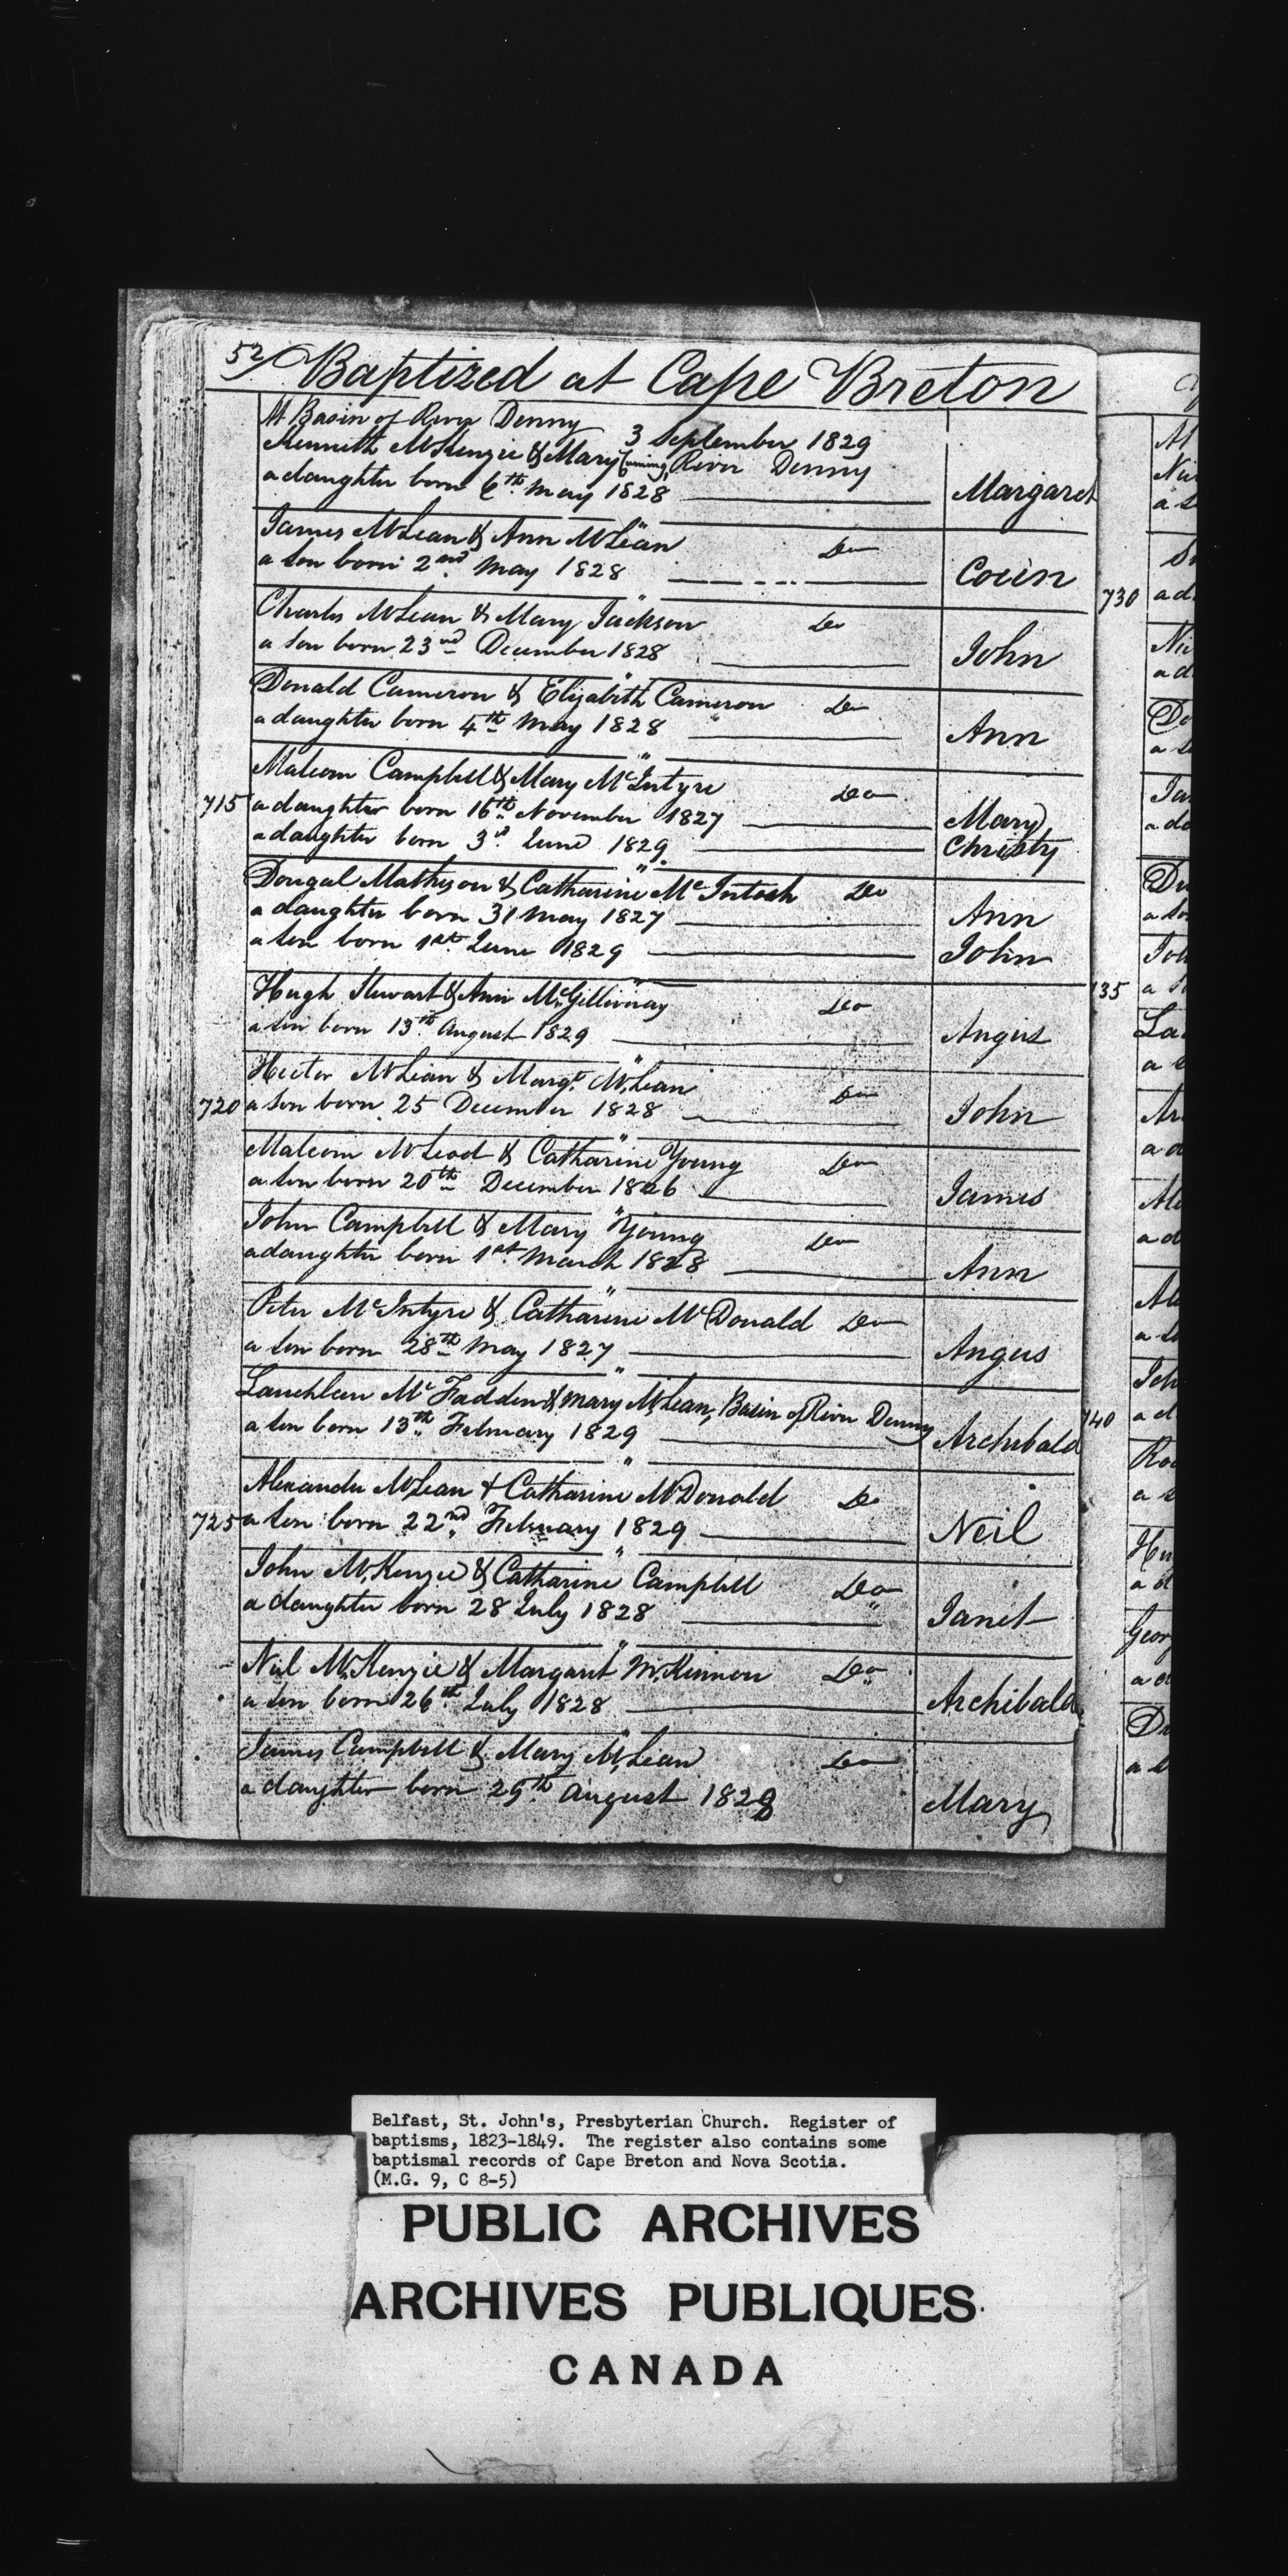 52/ Baptized at Cape Breton
At Basin of River Denny 3 September 1829
Kenneth McKenzie & Mary River Denny
a daughter born 6th May 1828 Margaret
James McLean & Ann McLean Do
a son born 2nd May 1828
Charles McLean & Mary Jackson Do
a son born 23rd December 1828 John
Donald Cameron & Elizabeth Cameron Do
a daughter born 4th May 1828 Ann
Malcom Campbell & Mary McIntyre Do
715 a daughter born 16th November 1827 Mary
a daughter born 3rd June 1829 Christy
Dougal Mathyson & Catharine McIntosh Do
a daughter born 31 May 1827 Ann
a son born 1st June 1829 John
Hugh Stewart & Ann McGillivray Do
a son born 13th August 1829 Angus
Hector McLean & Margt. McLean Do
720 a son born 25 December 1828 John
Malcom McLeod & Catharine Young Do
a son born 20th December 1826 James
John Campbell & Mary Young Do
a daughter born 1st March 1828 Ann
Peter McIntyre & Catharine McDonald Do
a son born 28th May 1827 Angus
Lauchlan McFadden & Mary McLean, Basin of River Denny
a son born 13th February 1829 Archibald
Alexander McLean & Catharine McDonald Do
725 a son born 22nd February 1829 Neil
John McKenzie & Catharine Campbell Do
a daughter born 28 July 1828 Janet
Neil McKenzie & Margaret McKinnon Do
a son born 26th July 1828 Archibald
James Campbell & Mary McLean Do
a daughter born 29th August 1828 Mary
730
735
740
Belfast, St. John's, Presbyterian Church. Register of
baptisms, 1823-1849. The register also contains some
baptismal records of Cape Breton and Nova Scotia.
(M.G. 9, C 8-5)
PUBLIC ARCHIVES
ARCHIVES PUBLIQUES
CANADA